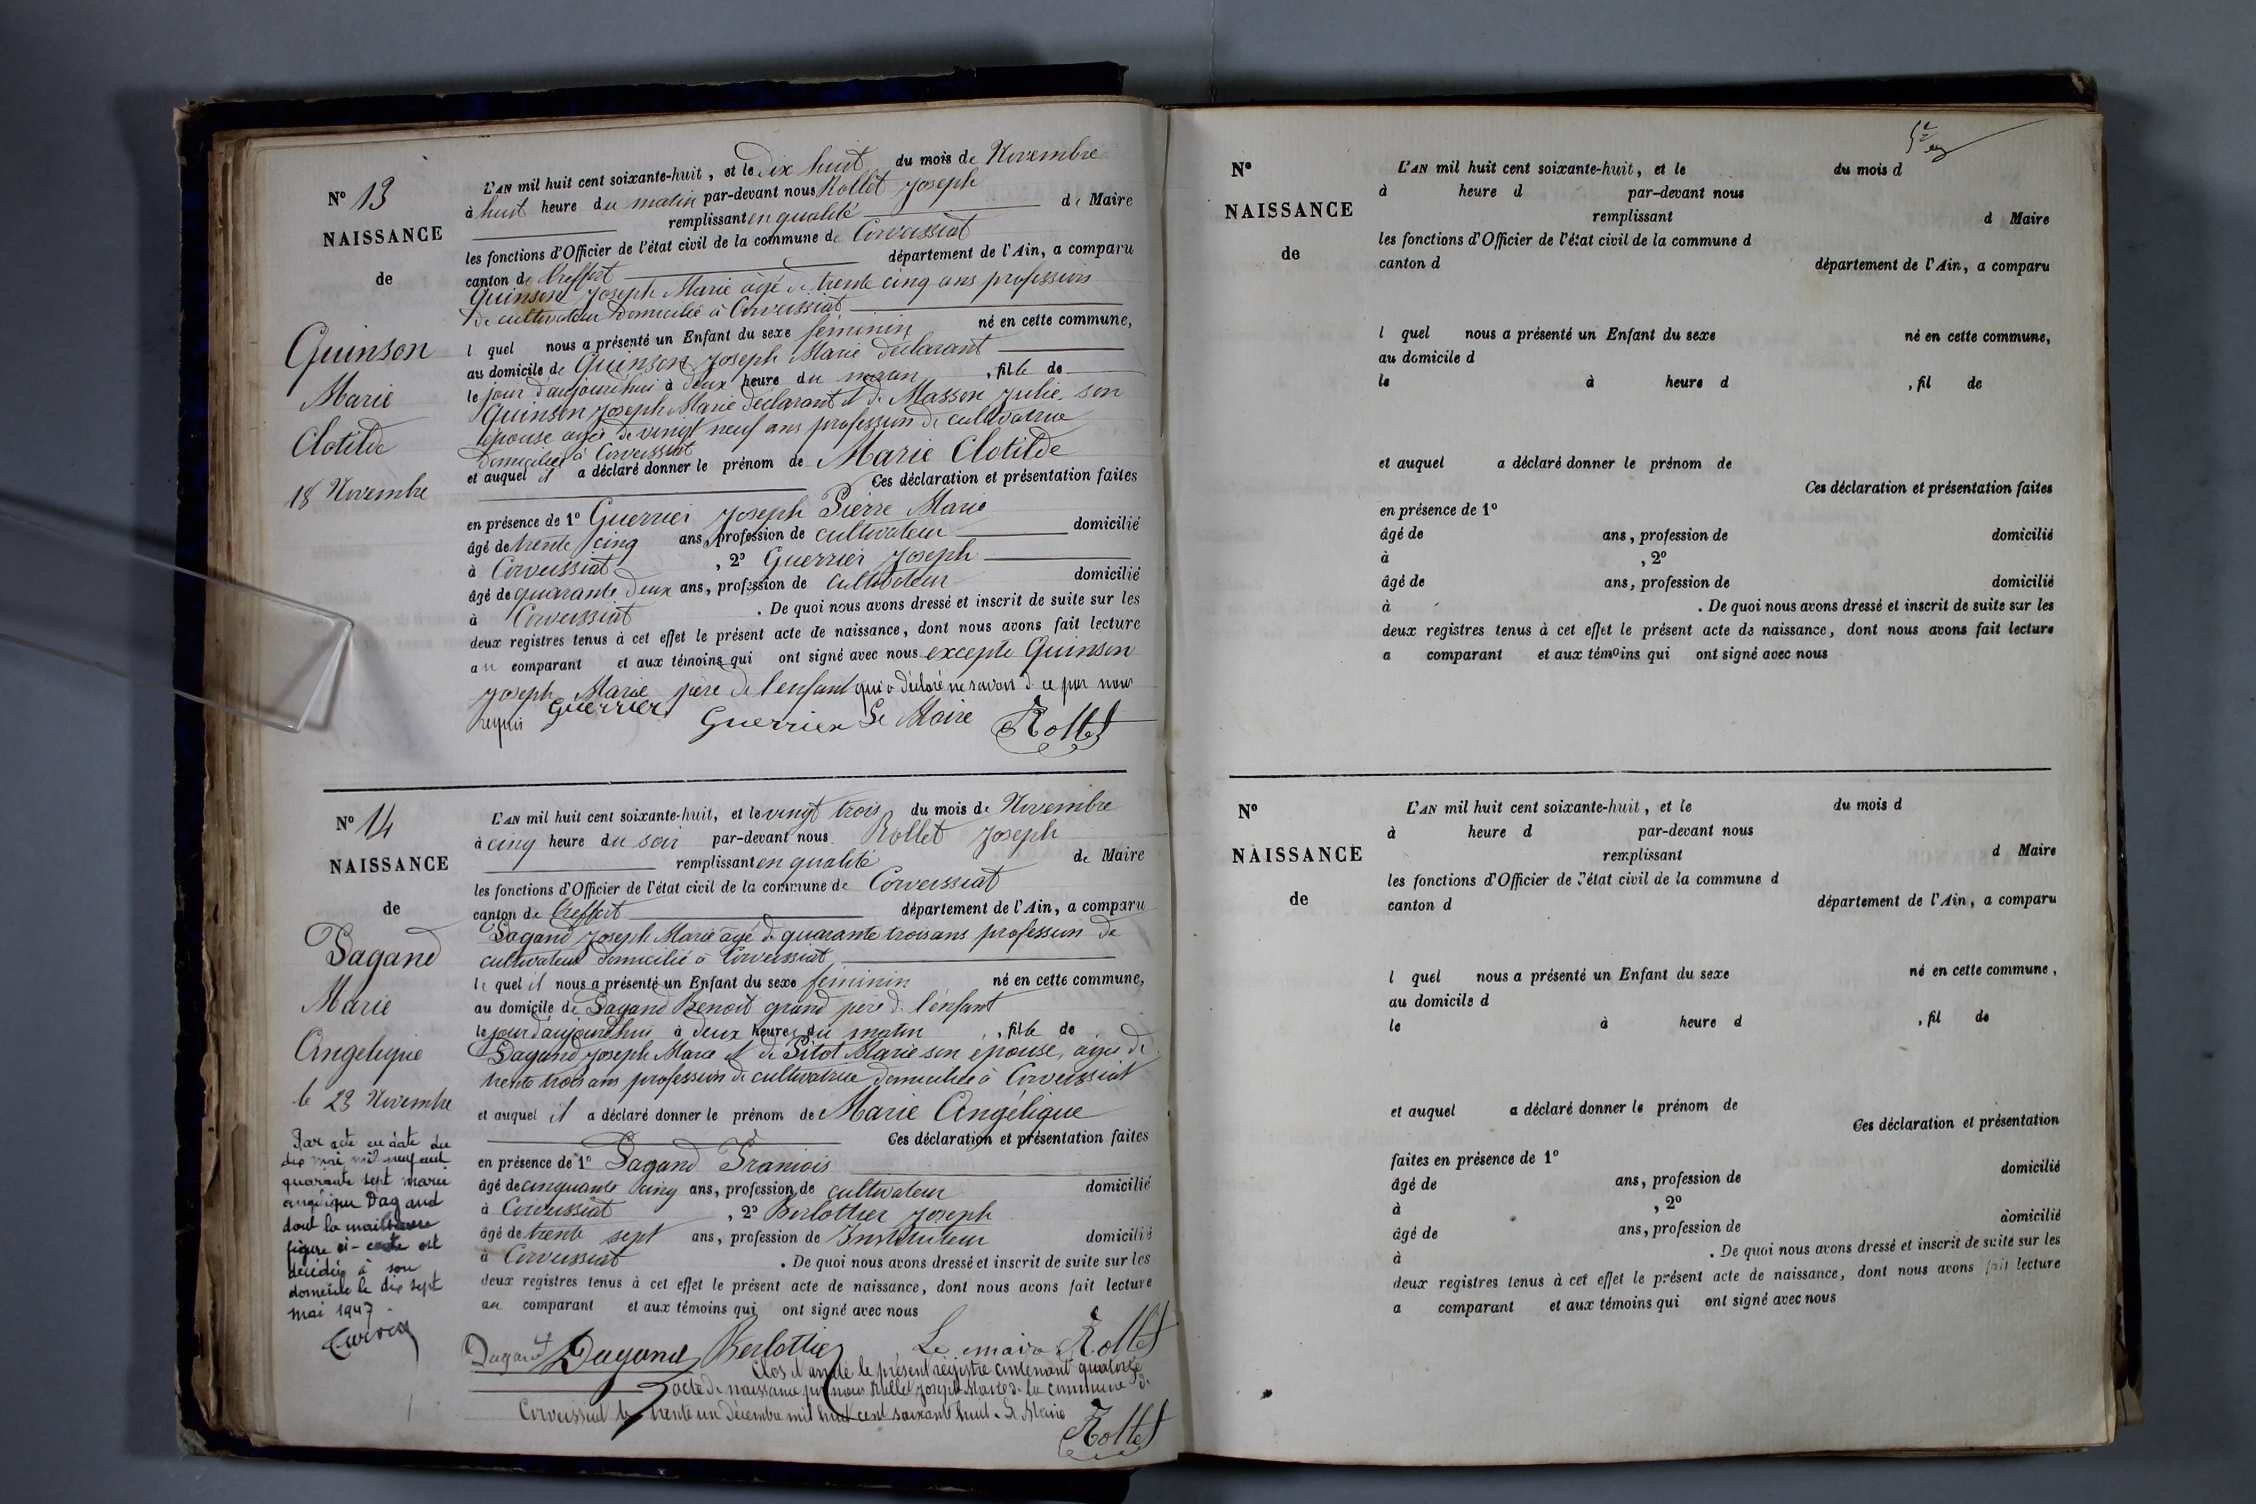 N° 13
NAISSANCE
de
Quinson
Marie
Clotilde
18 Novembre
L'AN mil huit cent soixante-huit, et le dix huit du mois de Novembre
à huit heure du matin par-devant nous Rollet Joseph
remplissant en qualité de Maire
les fonctions d'Officier de l'état civil de la commune de Corveissiat
canton de Treffort département de l'Ain, a comparu
Quinson Joseph Marie âgé de trente cinq ans profession
de cultivateur domicilié à Corveissiat
l quel nous a présenté un Enfant du sexe féminin né en cette commune,
au domicile de Quinson Joseph Marie déclarant
le jour d'aujourd'hui à deux heure du matin, fille de
Quinson Joseph Marie déclarant et de Masson Julie son
épouse agée de vingt neuf ans profession de cultivatrice
domiciliée à Corveissiat
et auquel il a déclaré donner le prénom de Marie Clotilde
Ces déclaration et présentation faites
en présence de 1° Guerrier Joseph Pierre Marie
âgé de trente cinq ans, profession de cultivateur domicilié
à Corveissiat, 2° Guerrier Joseph
âgé de quarante deux ans, profession de cultivateur domicilié
à Corveissiat. De quoi nous avons dressé et inscrit de suite sur les
deux registres tenus à cet effet le présent acte de naissance, dont nous avons fait lecture
au comparant et aux témoins qui ont signé avec nous excepté Quinson
Joseph Marie père de l'enfant qui a déclaré ne savoir de ce par nous
requis Guerrier Guerrier Le Maire Rollet
N° 14
NAISSANCE
de
Dagand
Marie
Angelique
le 23 Novembre
Par acte en date du
dix mai mil neuf cent
quarante sept marie
angélique Dagand
dont la naissance
figure ci-contre est
décédée à son
domicile le dix sept
mai 1947.
L'AN mil huit cent soixante-huit, et le vingt trois du mois de Novembre
à cinq heure du soir par-devant nous Rollet Joseph
remplissant en qualité de Maire
les fonctions d'Officier de l'état civil de la commune de Corveissiat
canton de Treffort département de l'Ain, a comparu
Dagand Joseph Marie agé de quarante trois ans profession de
cultivateur domicilié à Corveissiat
le quel il nous a présenté un Enfant du sexe féminin né en cette commune,
au domicile de Dagand Benoit grand père de l'enfant
le jour d'aujourd'hui à deux heures du matin, fille de
Dagand Joseph Marie et de Pitot Marie son épouse, agée de
trente trois ans profession de cultivatrice domiciliée à Corveissiat
et auquel il a déclaré donner le prénom de Marie Angélique
Ces déclaration et présentation faites
en présence de 1° Dagand Franiois
âgé de cinquante cinq ans, profession de cultivateur domicilié
à Corveissiat, 2° Berlottier Joseph
âgé de trente sept ans, profession de Instituteur domicilié
à Corveissiat. De quoi nous avons dressé et inscrit de suite sur les
deux registres tenus à cet effet le présent acte de naissance, dont nous avons fait lecture
au comparant et aux témoins qui ont signé avec nous
Dagand Dagand Berlottier Le maire Rollet
Clos et arrêté le présent registre contenant quatorze
acte de naissance par nous Rollet Joseph Maire de la commune de
Corveissiat le trente un décembre mil huit cent soixante huit. Le Maire
Rollet
N°
NAISSANCE
de
L'AN mil huit cent soixante-huit, et le du mois d
à heure d par-devant nous
remplissant d Maire
les fonctions d'Officier de l'état civil de la commune d
canton d département de l'Ain, a comparu
l quel nous a présenté un Enfant du sexe né en cette commune,
au domicile d
le à heure d , fil de
et auquel a déclaré donner le prénom de
Ces déclaration et présentation faites
en présence de 1°
âgé de ans, profession de domicilié
à , 2°
âgé de ans, profession de domicilié
à . De quoi nous avons dressé et inscrit de suite sur les
deux registres tenus à cet effet le présent acte de naissance, dont nous avons fait lecture
a comparant et aux témoins qui ont signé avec nous
N°
NAISSANCE
de
L'AN mil huit cent soixante-huit, et le du mois d
à heure d par-devant nous
remplissant d Maire
les fonctions d'Officier de l'état civil de la commune d
canton d département de l'Ain, a comparu
l quel nous a présenté un Enfant du sexe né en cette commune,
au domicile d
le à heure d , fil de
et auquel a déclaré donner le prénom de
Ces déclaration et présentation
faites en présence de 1°
âgé de ans, profession de domicilié
à , 2°
âgé de ans, profession de domicilié
à . De quoi nous avons dressé et inscrit de suite sur les
deux registres tenus à cet effet le présent acte de naissance, dont nous avons fait lecture
a comparant et aux témoins qui ont signé avec nous